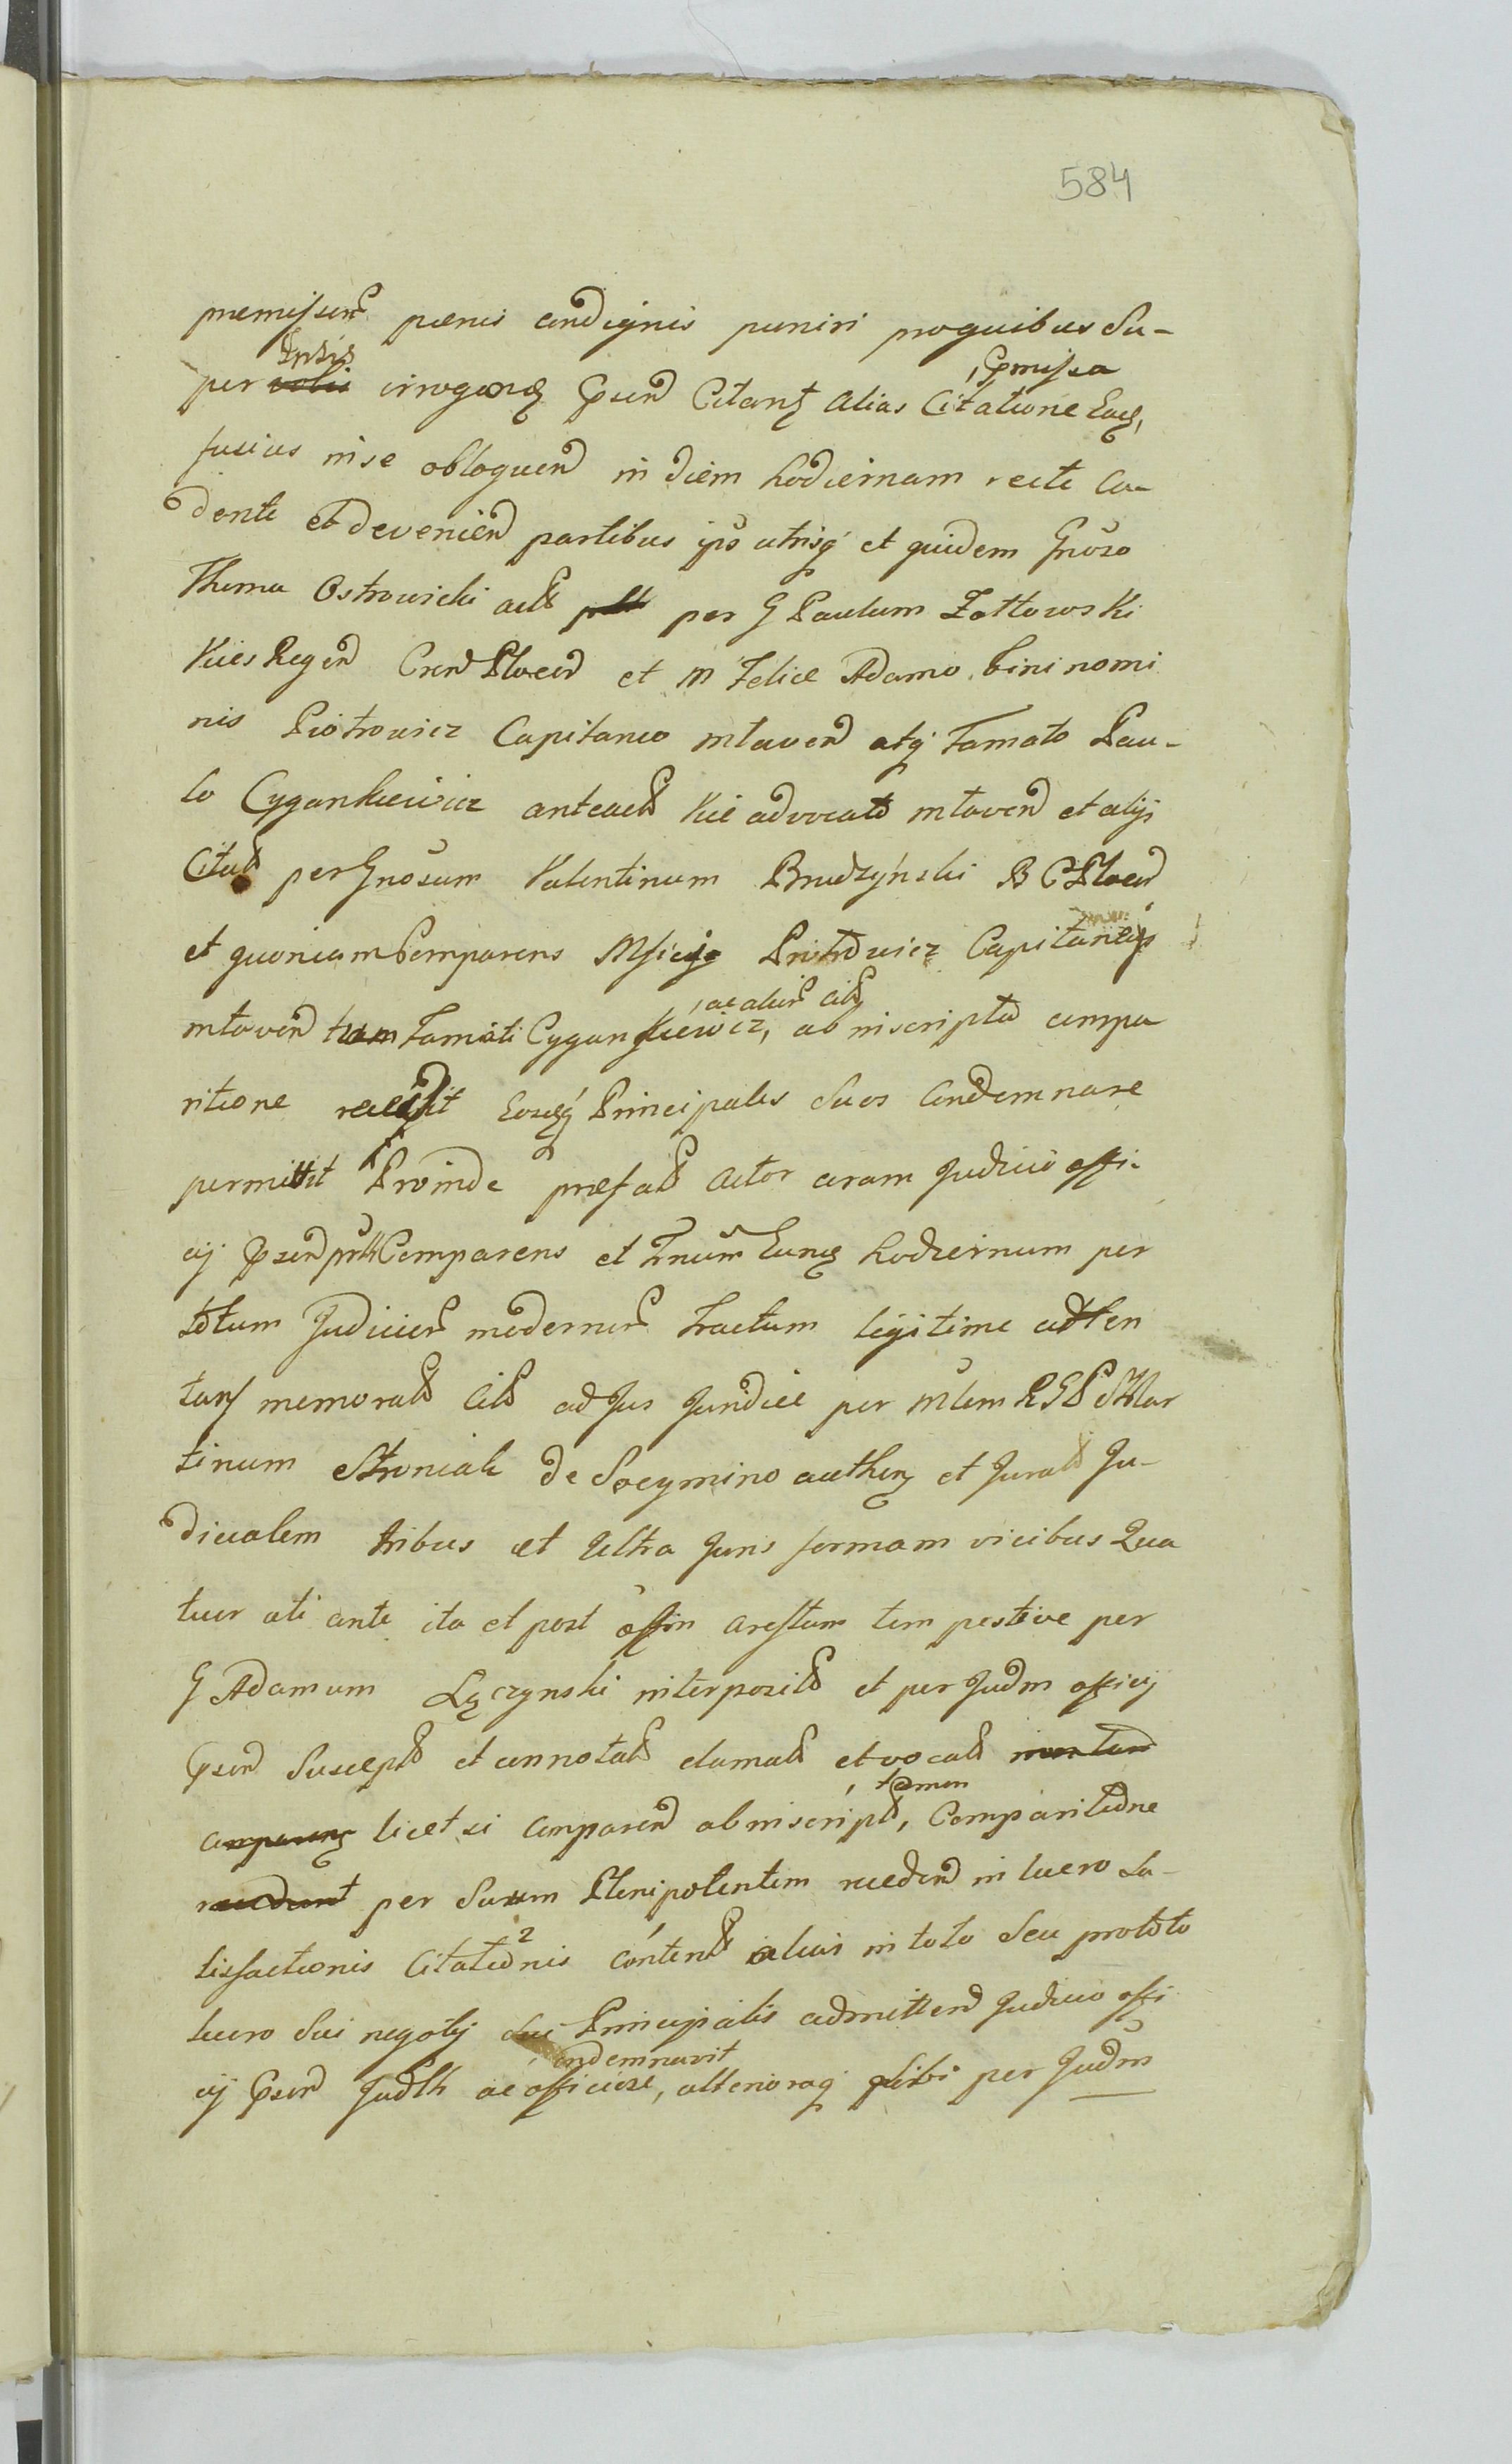 584
præmissor poenis condignis puniri proquibus Su-
per irrogand Cpsend Citant Alias Citatione Eaq, Cpmissa
fusius in se obloquend in diem hodiernam recte Ca-
dente et devenien partibus ips utrisq et quidem Gnoso
Thoma Ostrowicki actore per G Paulum Zołtowski
Vices Regen Cren Plocen et M Felice Adamo bini nomi
nis Piotrowicz Capitaneo mlaven atq Famato Pau-
lo Cygankiewicz anteact Vice advocato mlaven et alijs
Citat per Gnosum Valentinum Brudzyński B C Plocen
et quoniam Comparens Piotrowicz Capitanei
mlaven Famati Cygankiewicz, ac alior Cit ab inscripta compa
ritione recessit Eosq Principales Suos Condemnare
permisit Proinde præfat Actor coram Judicio offi-
cij Cpsen Comparens et Trnum Eunq hodiernum per
totum Judicior modernor tractum legitime atten
tans memorat Cit ad Jus Juridice per mlem R G P Mar
tinum Stroniak de Socymino authen et Jurat Ju-
dicialem tribus et Ultra Juris formam vicibus Qua
tuor uti ante ita et post offin arestum tempestive per
G Adamum Łączynski interposit et per Judm officij
Cpsen Suscept et connotat clamat et vocat
licet si comparen ab inscript, tamen Comparitione
per Suum Plenipotentem receden in lucro Sa-
tisfactionis Citationis content alias in toto Seu pro toto
lucro Sui negotij Sui Principalis admitten Judicio offi
cij Cpsen Judlit ac officiose, condemnavit ulterioraq sibi per Judm